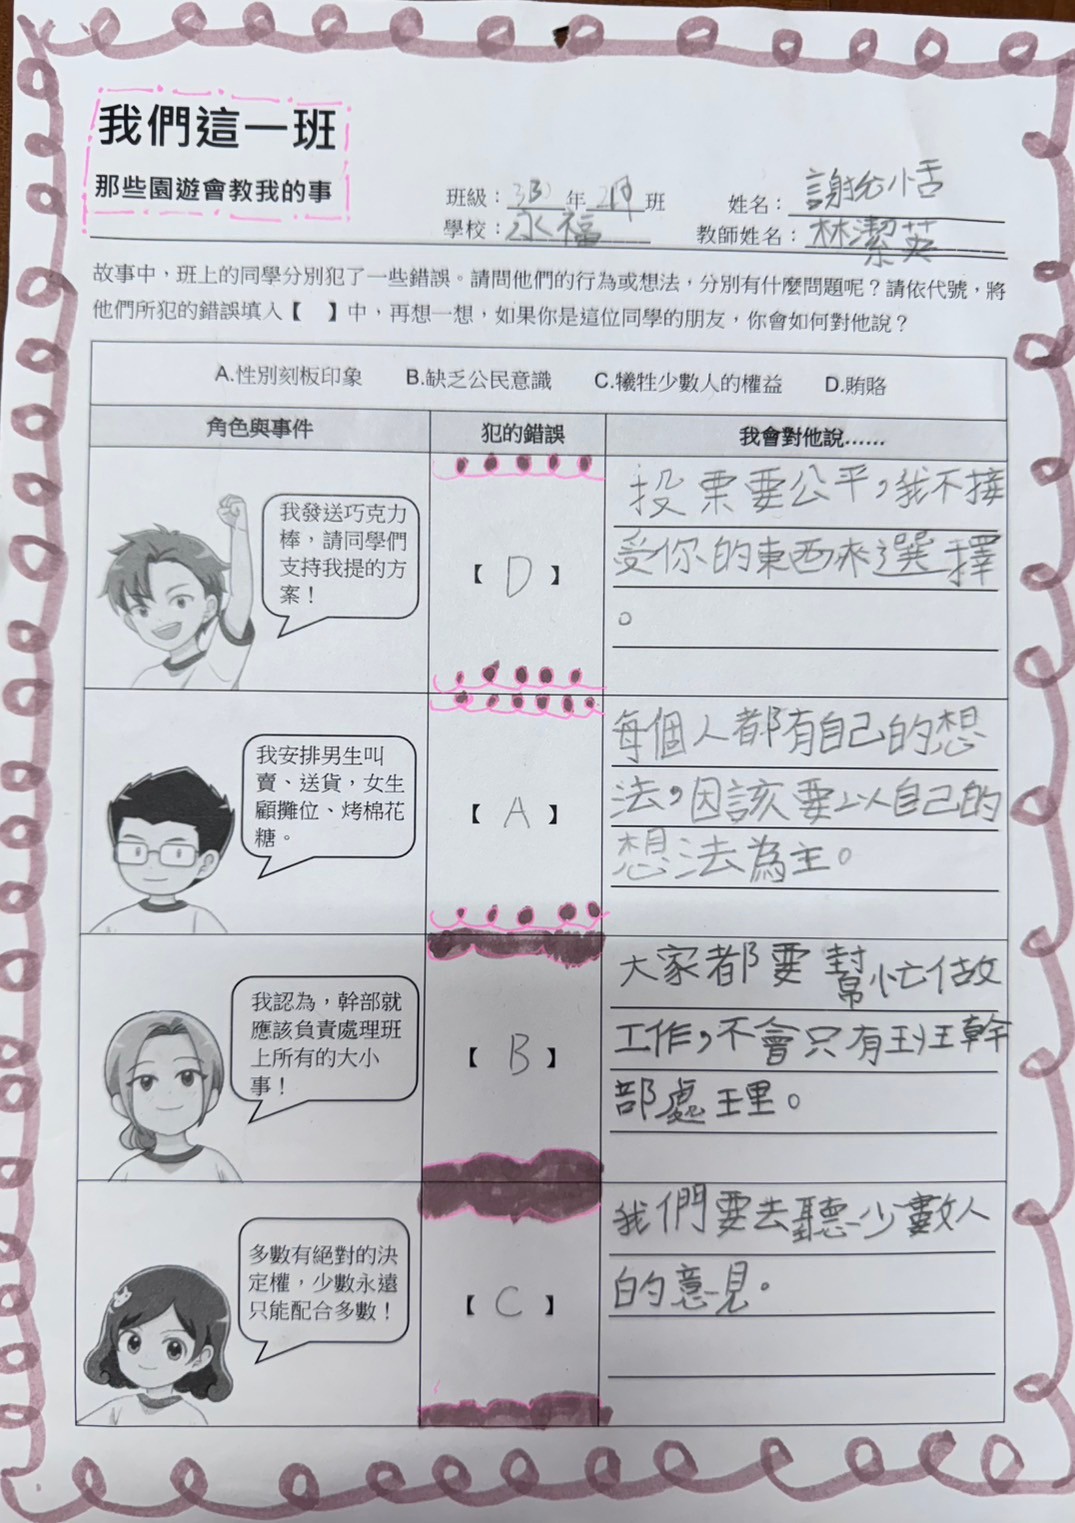 我們這一班
那些園遊會教我的事
班級：年班 姓名：謝
學校：永福 教師姓名：林潔英
故事中，班上的同學分別犯了一些錯誤。請問他們的行為或想法，分別有什麼問題呢？請依代號，將
他們所犯的錯誤填入【 】中，再想一想，如果你是這位同學的朋友，你會如何對他說？
A.性別刻板印象 B.缺乏公民意識 C.犧牲少數人的權益 D.賄賂
角色與事件 犯的錯誤 我會對他說……
我發送巧克力
棒，請同學們
支持我提的方
案！
【 D 】
投票要公平，我不接
受你的東西來選擇
。
我安排男生叫
賣、送貨，女生
顧攤位、烤棉花
糖。
【 A 】
每個人都有自己的想
法，因該要以自己的
想法為主。
我認為，幹部就
應該負責處理班
上所有的大小
事！
【 B 】
大家都要幫忙做
工作，不會只有班幹
部處理。
多數有絕對的決
定權，少數永遠
只能配合多數！
【 C 】
我們要去聽少數人
的意見。